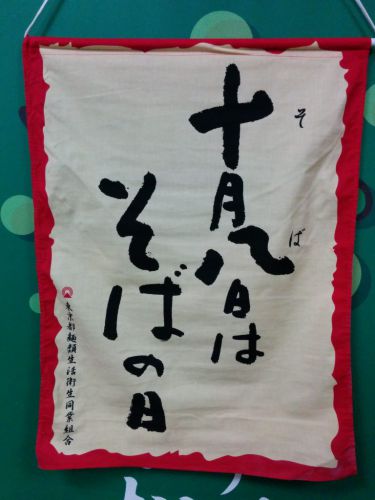 十月八日は
そば
そばの日
東京都麺類生活衛生同業組合